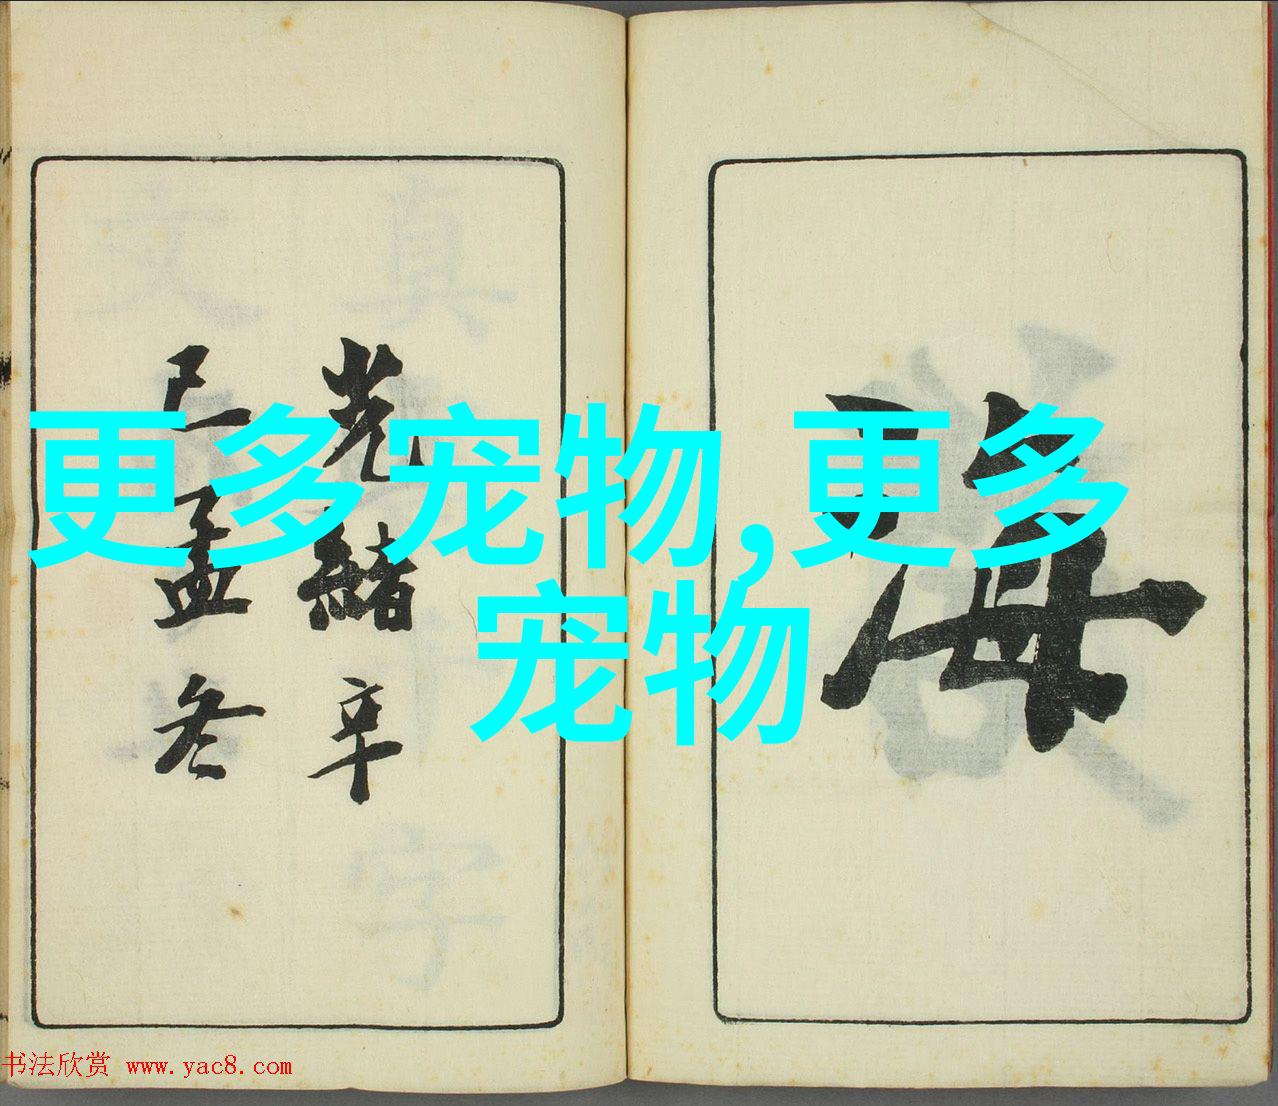 更多宠物,更多
宠物
海
光緒辛
丑孟冬
书法欣赏 www.yac8.com